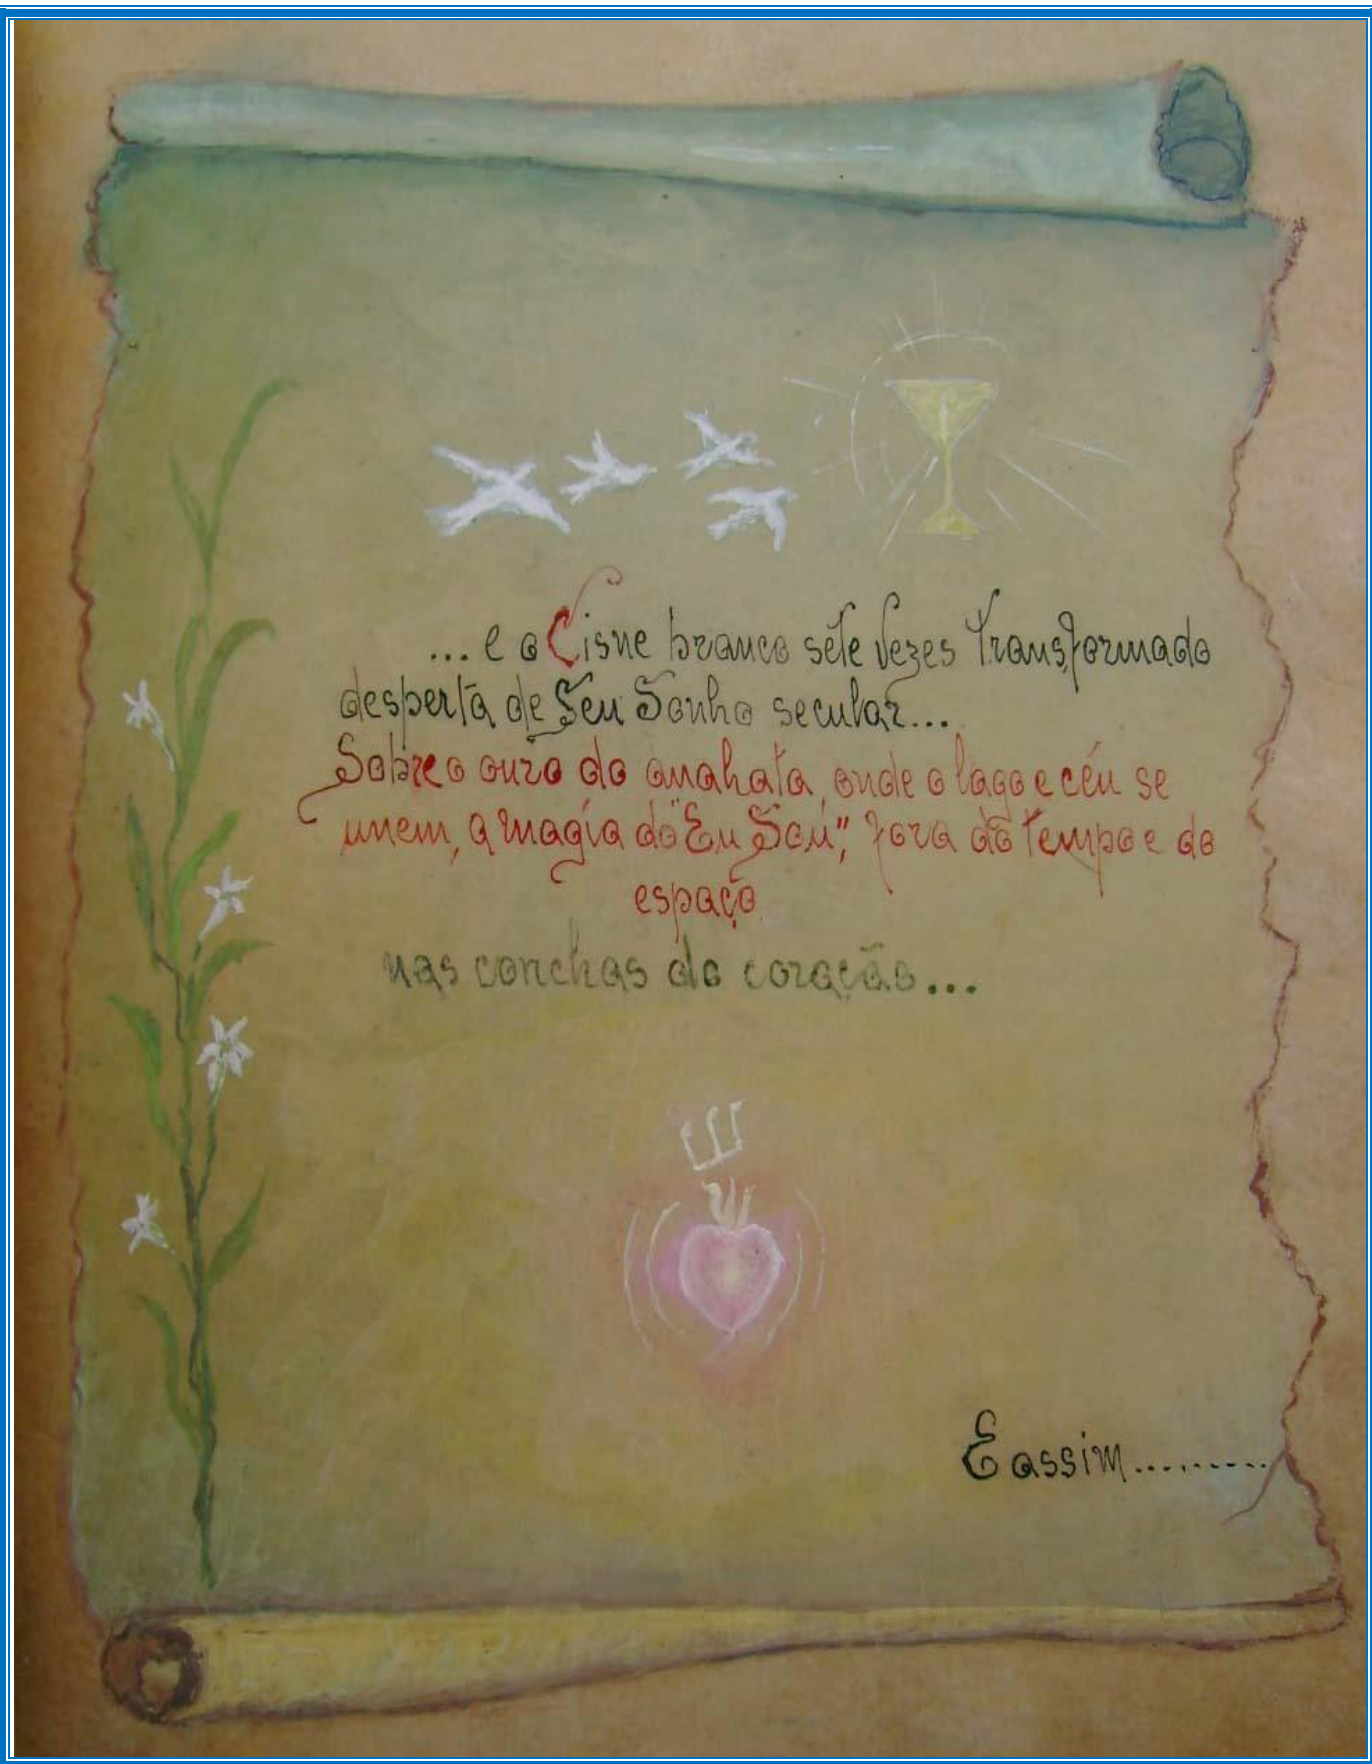 ... e o Cisne branco sete vezes transformado
desperta de Seu Sonho secular...
Sobre o ouro do anahata, onde o lago e céu se
unem, a magia do "Eu Sou", fora do tempo e do
espaço
nas conchas do coração...
E assim..........